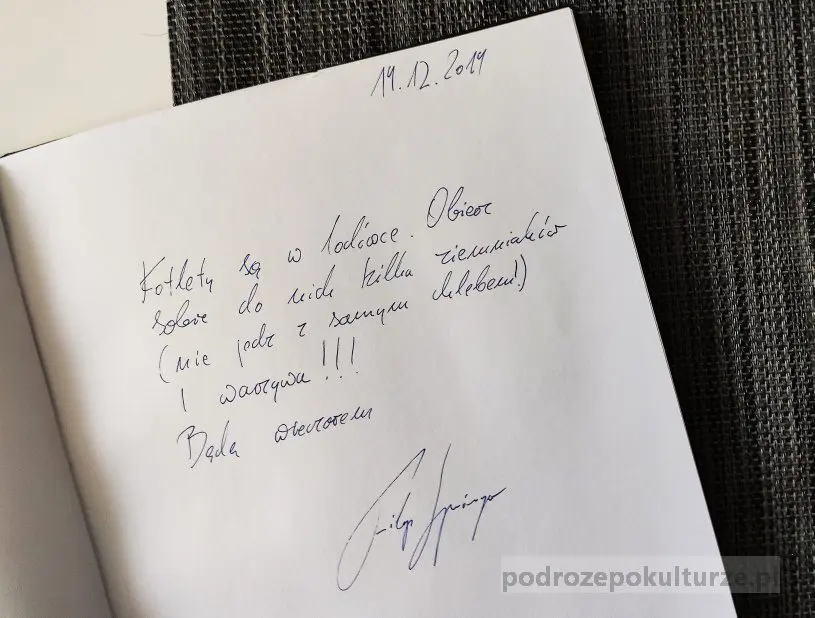 19.12.2019
Kotlety są w lodówce. Obierz
sobie do nich kilka ziemniaków
(nie jedz z samym chlebem!)
I warzywa!!!
Będę wieczorem
Filip Springer
podrozepokulturze.pl